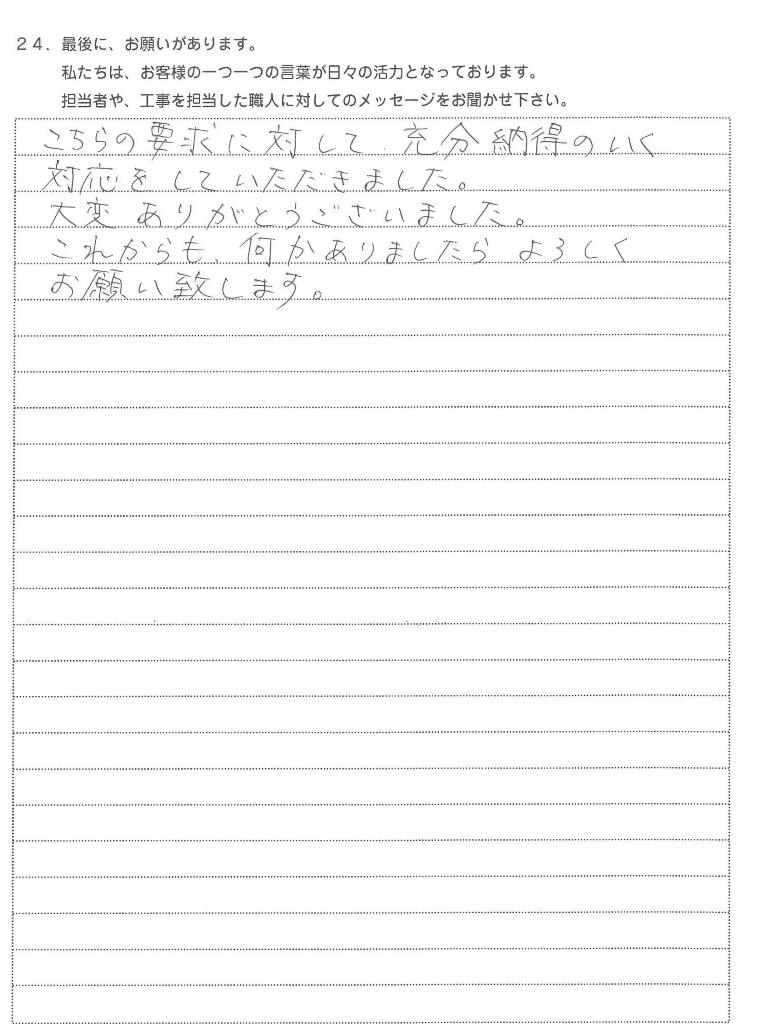 24. 最後に、お願いがあります。
私たちは、お客様の一つ一つの言葉が日々の活力となっております。
担当者や、工事を担当した職人に対してのメッセージをお聞かせ下さい。
こちらの要求に対して、充分納得のいく
対応をしていただきました。
大変ありがとうございました。
これからも、何かありましたらよろしく
お願い致します。